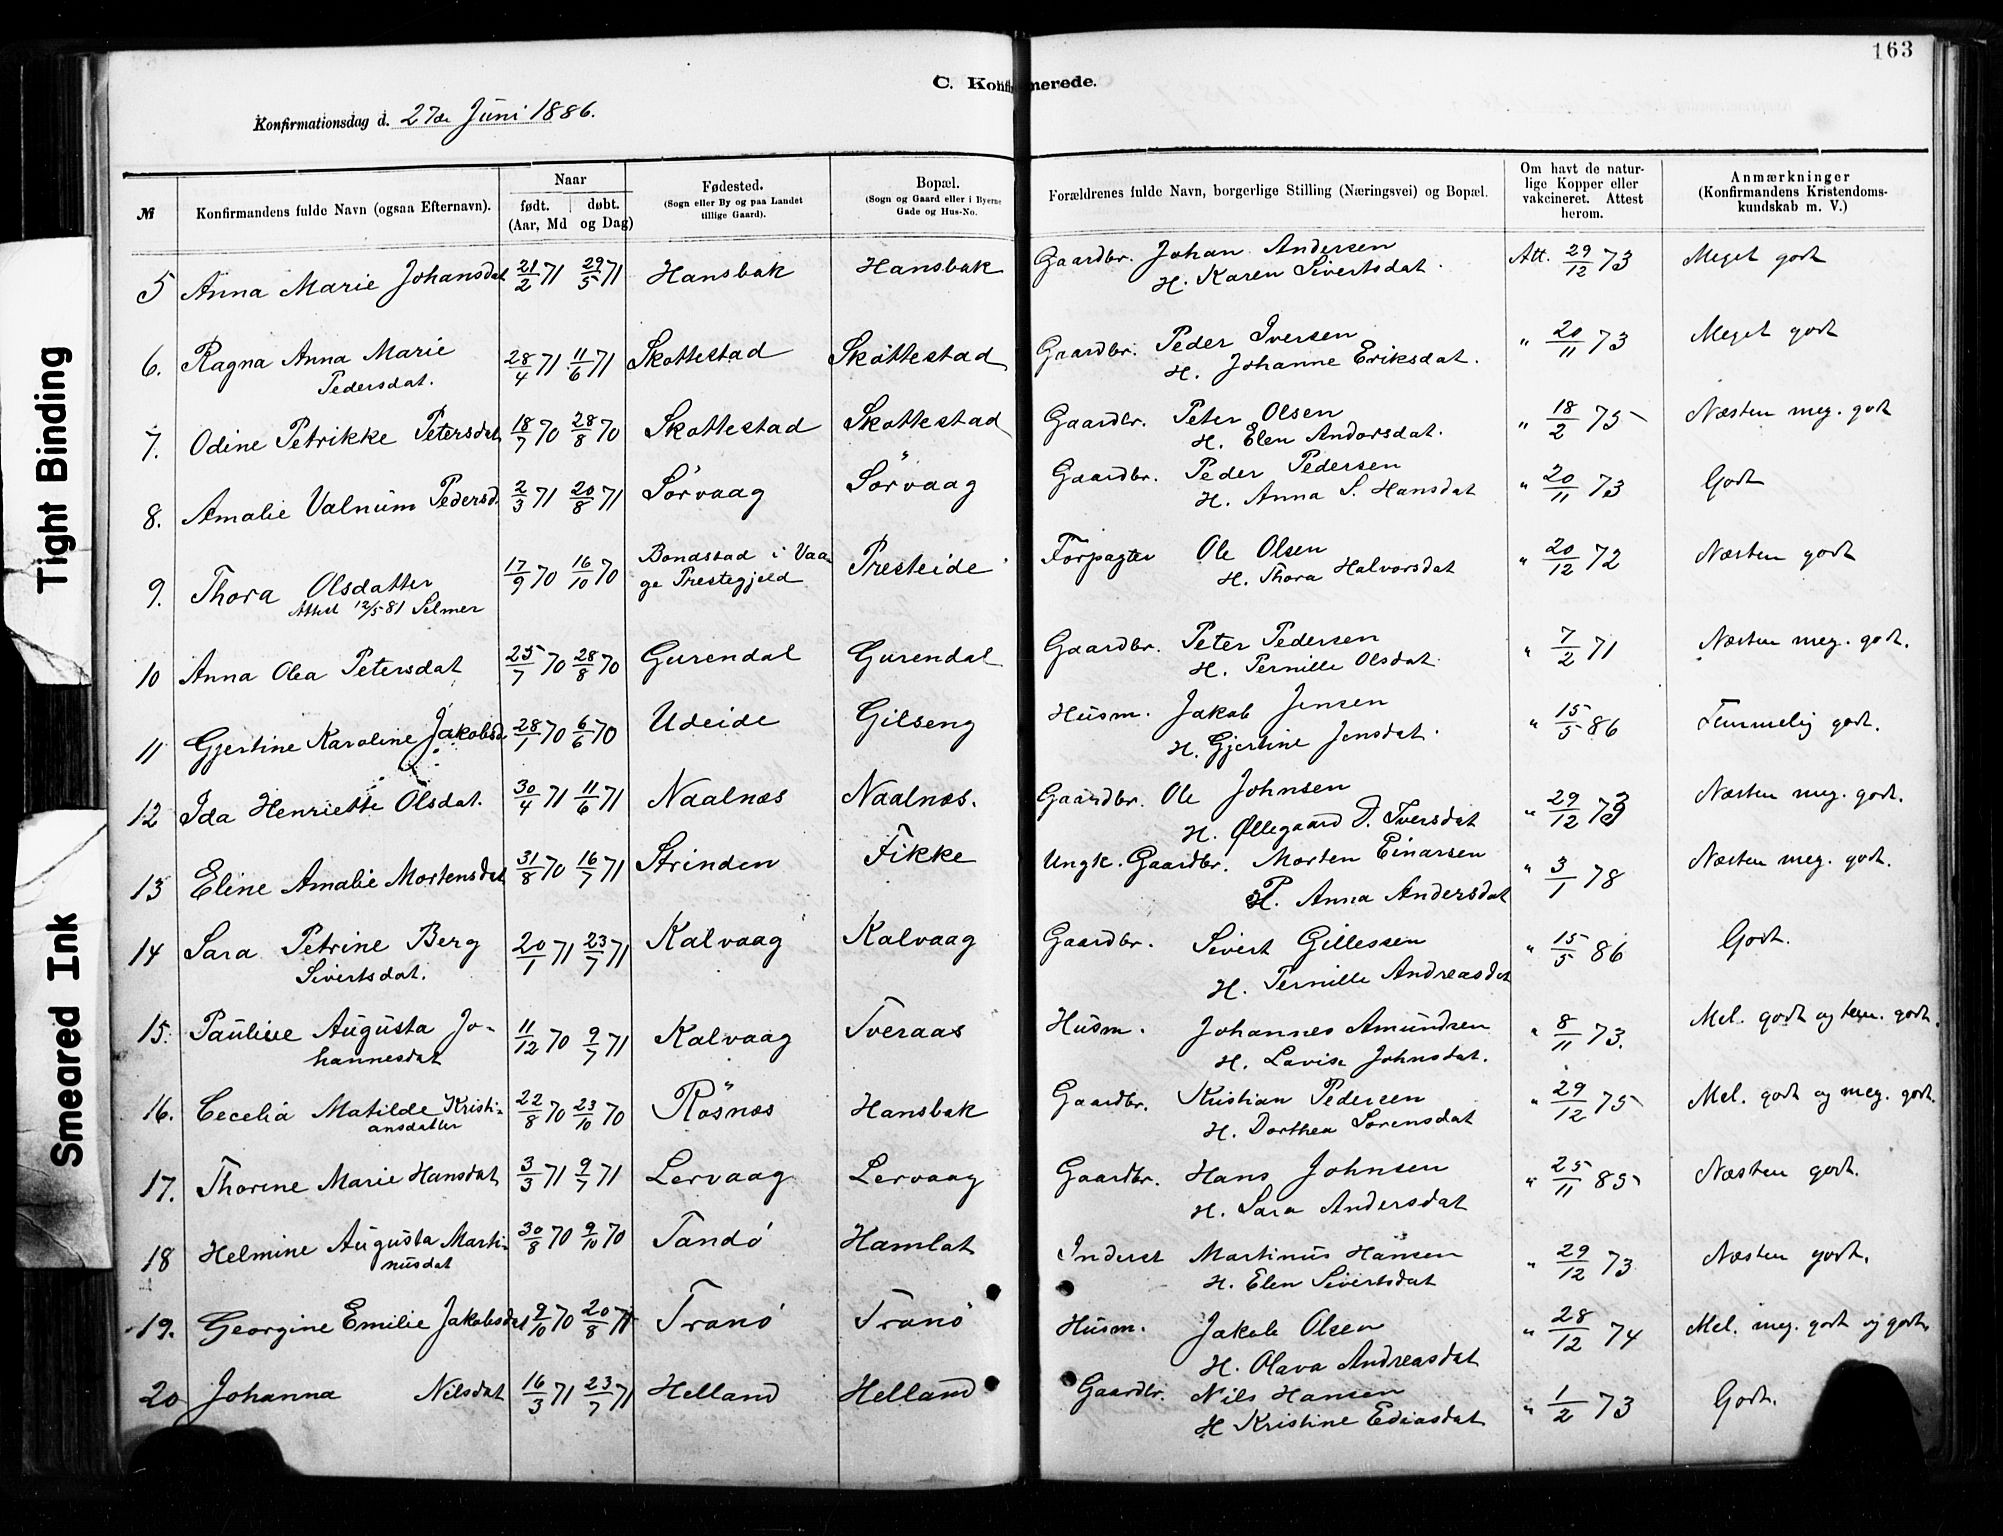 163
C. Konfirmerede.
Konfirmationsdag d. 27de Juni 1886.
№ Konfirmandens fulde Navn (ogsaa Efternavn). Naar født. døbt. (Aar, Md og Dag) Fødested. (Sogn eller By og paa Landet tillige Gaard). Bopæl. (Sogn og Gaard eller i Byerne Gade og Hus-No. Forældrenes fulde Navn, borgerlige Stilling (Næringsvei) og Bopæl. Om havt de naturlige Kopper eller vakcineret. Attest herom. Anmærkninger (Konfirmandens Kristendomskundskab m. V.)
5 Anna Marie Johansdat 21/2 71 29/5 71 Hansbak Hansbak Gaardbr. Johan Andersen Att. 29/12 73 Meget godt
H. Karen Sivertsdat.
6. Ragna Anna Marie 28/4 71 11/6 71 Skottestad Skottestad Gaardbr. Peder Iversen " 20/11 73 Meget godt
Pedersdat. H. Johanne Eriksdat.
7. Odine Petrikke Petersdat 18/7 70 28/8 70 Skottestad Skottestad Gaardbr. Peter Olsen " 18/2 75 Næsten meg. godt
H. Elen Andorsdat.
8. Amalie Valnum Pedersd. 2/3 71 20/8 71 Sörvaag Sörvaag Gaardbr. Peder Pedersen " 20/11 73 Godt
H. Anna S. Hansdat
9. Thora Olsdatter 17/9 70 16/10 70 Bondstad i Vaa- Presteide Forpagter Ole Olsen " 20/12 72 Næsten godt
Attest 12/5 81 Selmer ge Prestegjeld H. Thora Halvorsdat
10 Anna Olea Petersdat 25/7 70 28/8 70 Gurendal Gurendal Gaardbr. Peter Pedersen " 7/2 71 Næsten meg. godt.
H. Pernille Olsdat
11 Gjertine Karoline Jakobsd 28/1 70 6/6 70 Udeide Gilseng Husm. Jakob Jensen " 15/5 86 Temmelig godt.
H. Gjertine Jensdat.
12 Ida Henriette Olsdat. 30/4 71 11/6 71 Naalnæs Naalnæs. Gaardbr. Ole Johnsen " 29/12 73 Næsten meg. godt.
H. Øllegaard D. Iversdat
13 Eline Amalie Mortensdat 31/8 70 16/7 71 Strinden Fikke Ungk. Gaardbr. Morten Einarsen " 3/1 78 Næsten meg. godt.
P. Anna Andersdat
14 Sara Petrine Berg 20/1 71 23/7 71 Kalvaag Kalvaag Gaardbr. Sivert Gillessen " 15/5 86 Godt.
Sivertsdat. H. Pernille Andreasdat
15. Pauline Augusta Jo- 11/12 70 9/7 71 Kalvaag Tveraas Husm. Johannes Amundsen " 8/11 73. Mel. godt og tem. godt.
hannesdat H. Lovise Johnsdat.
16. Cecelia Matilde Kristi- 22/8 70 23/10 70 Rösnæs Hansbak Gaardbr. Kristian Pedersen " 29/12 75 Mel. godt og meg. godt.
ansdatter H. Dorthea Sörensdat
17. Thorine Marie Hansdat 3/3 71 9/7 71 Lervaag Lervaag Gaardbr. Hans Johnsen " 25/11 85 Næsten godt.
H. Sara Andersdat
18 Helmine Augusta Marti- 30/8 70 9/10 70 Tandö Hamlat Inderst Martinus Hansen " 29/12 73 Næsten godt.
nusdat H. Elen Sivertsdat
19. Georgine Emilie Jakobsdat 9/10 70 20/8 71 Tranö Tranö Husm. Jakob Olsen " 28/12 74 Mel. meg. godt og godt.
H. Olava Andreasdat
20 Johanna Nilsdat 16/3 71 23/7 71 Helland Helland Gaardbr. Nils Hansen " 1/2 73 Godt.
H Kristine Ediasdat
Tight Binding
Smeared Ink